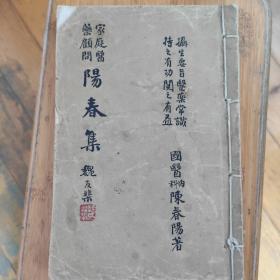 攝生要旨醫藥常識
持之有功閱之有益
國醫內科陳春陽著
家庭醫藥顧問
陽春集
魏友棐